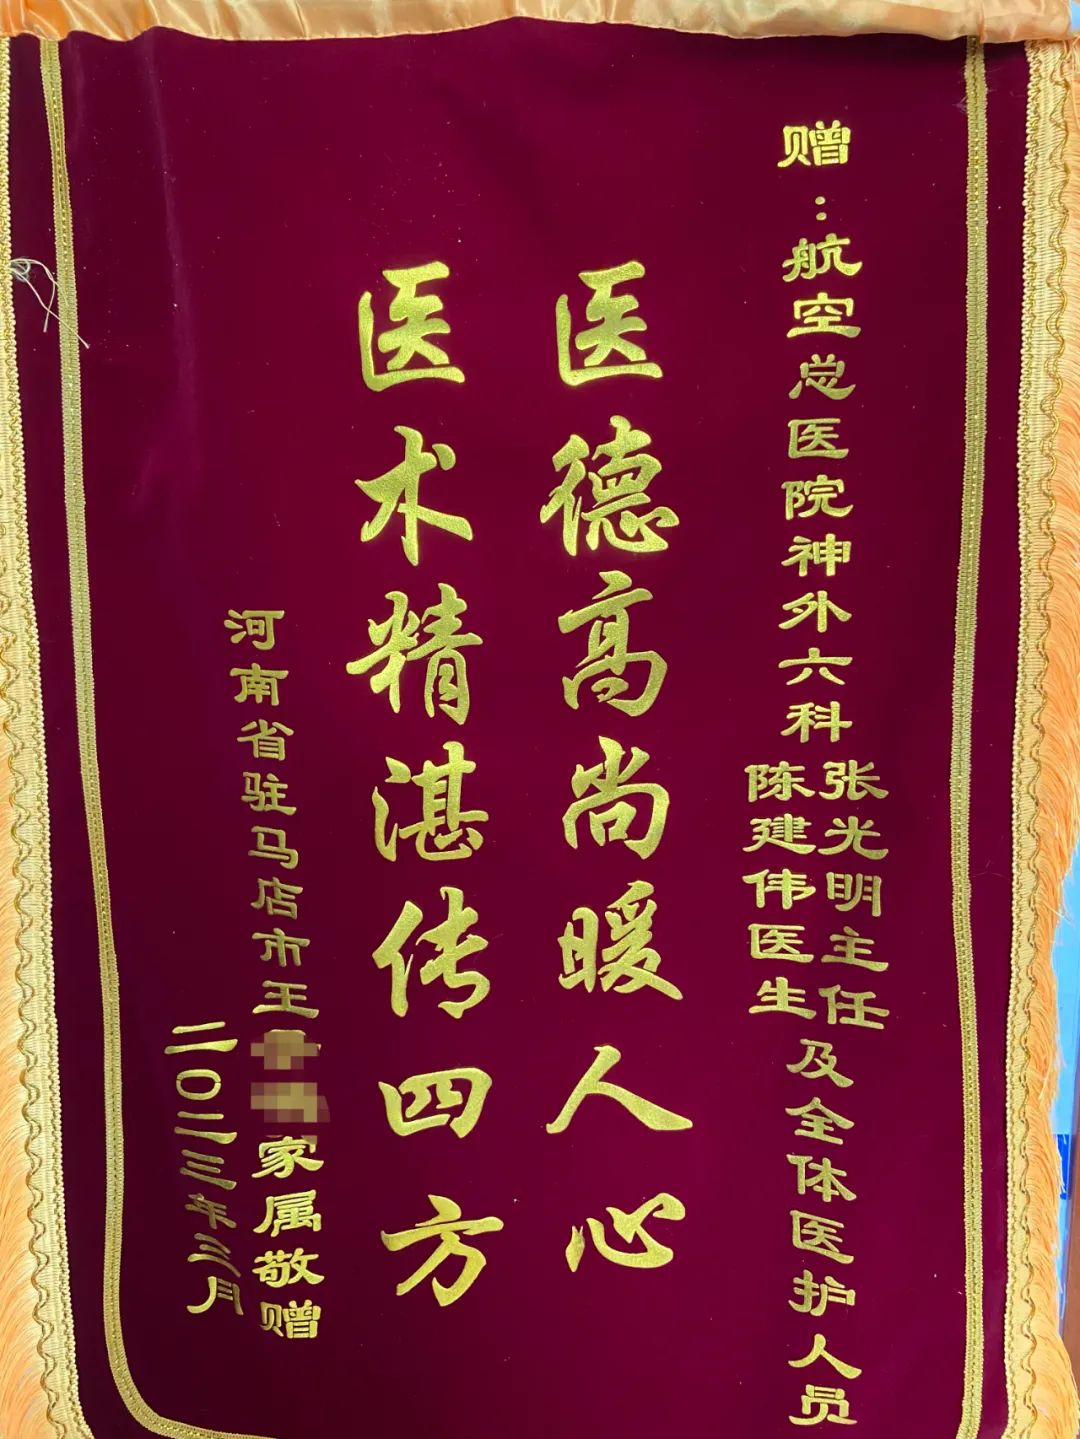 赠：航空总医院神外六科
张光明主任
陈建伟医生
及全体医护人员
医德高尚暖人心
医术精湛传四方
河南省驻马店市王
家属敬赠
二〇二三年三月